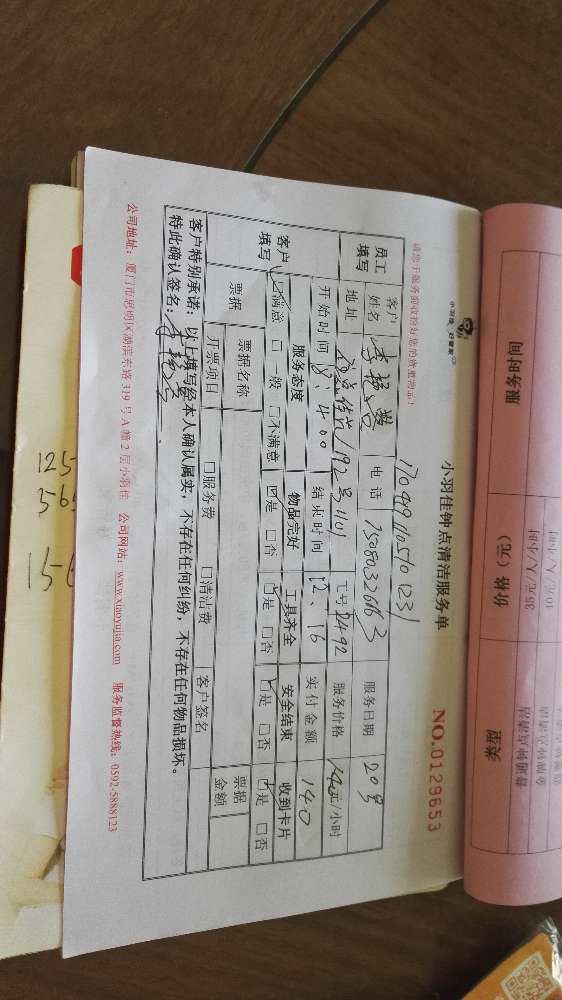 小羽佳 好管家
小羽佳钟点清洁服务单
NO.0129653
请您于服务前收拾好您的贵重物品！
1704991105101231
员工填写 客户姓名 电话 15080320163 服务日期 20号
地址 192号1101 工号 服务价格 元/小时
开始时间 8:400 结束时间 12、16 实付金额 140
客户填写 服务态度 物品完好 工具齐全 安全结束 收到卡片
☑满意 □一般 □不满意 ☑是 □否 ☑是 □否 ☑是 □否 ☑是 □否
票据 票据名称 客户签名 票据金额
开票项目 □服务费 □清洁费
客户特别承诺：以上填写经本人确认属实，不存在任何纠纷，不存在任何物品损坏。
特此确认签名：
公司地址：厦门市思明区湖滨东路319号A幢2层小羽佳 公司网站：www.xiaoyujia.com 服务监督热线：0592-5888123
服务时间 价格（元） 类型
35元/人/小时
125
565
156